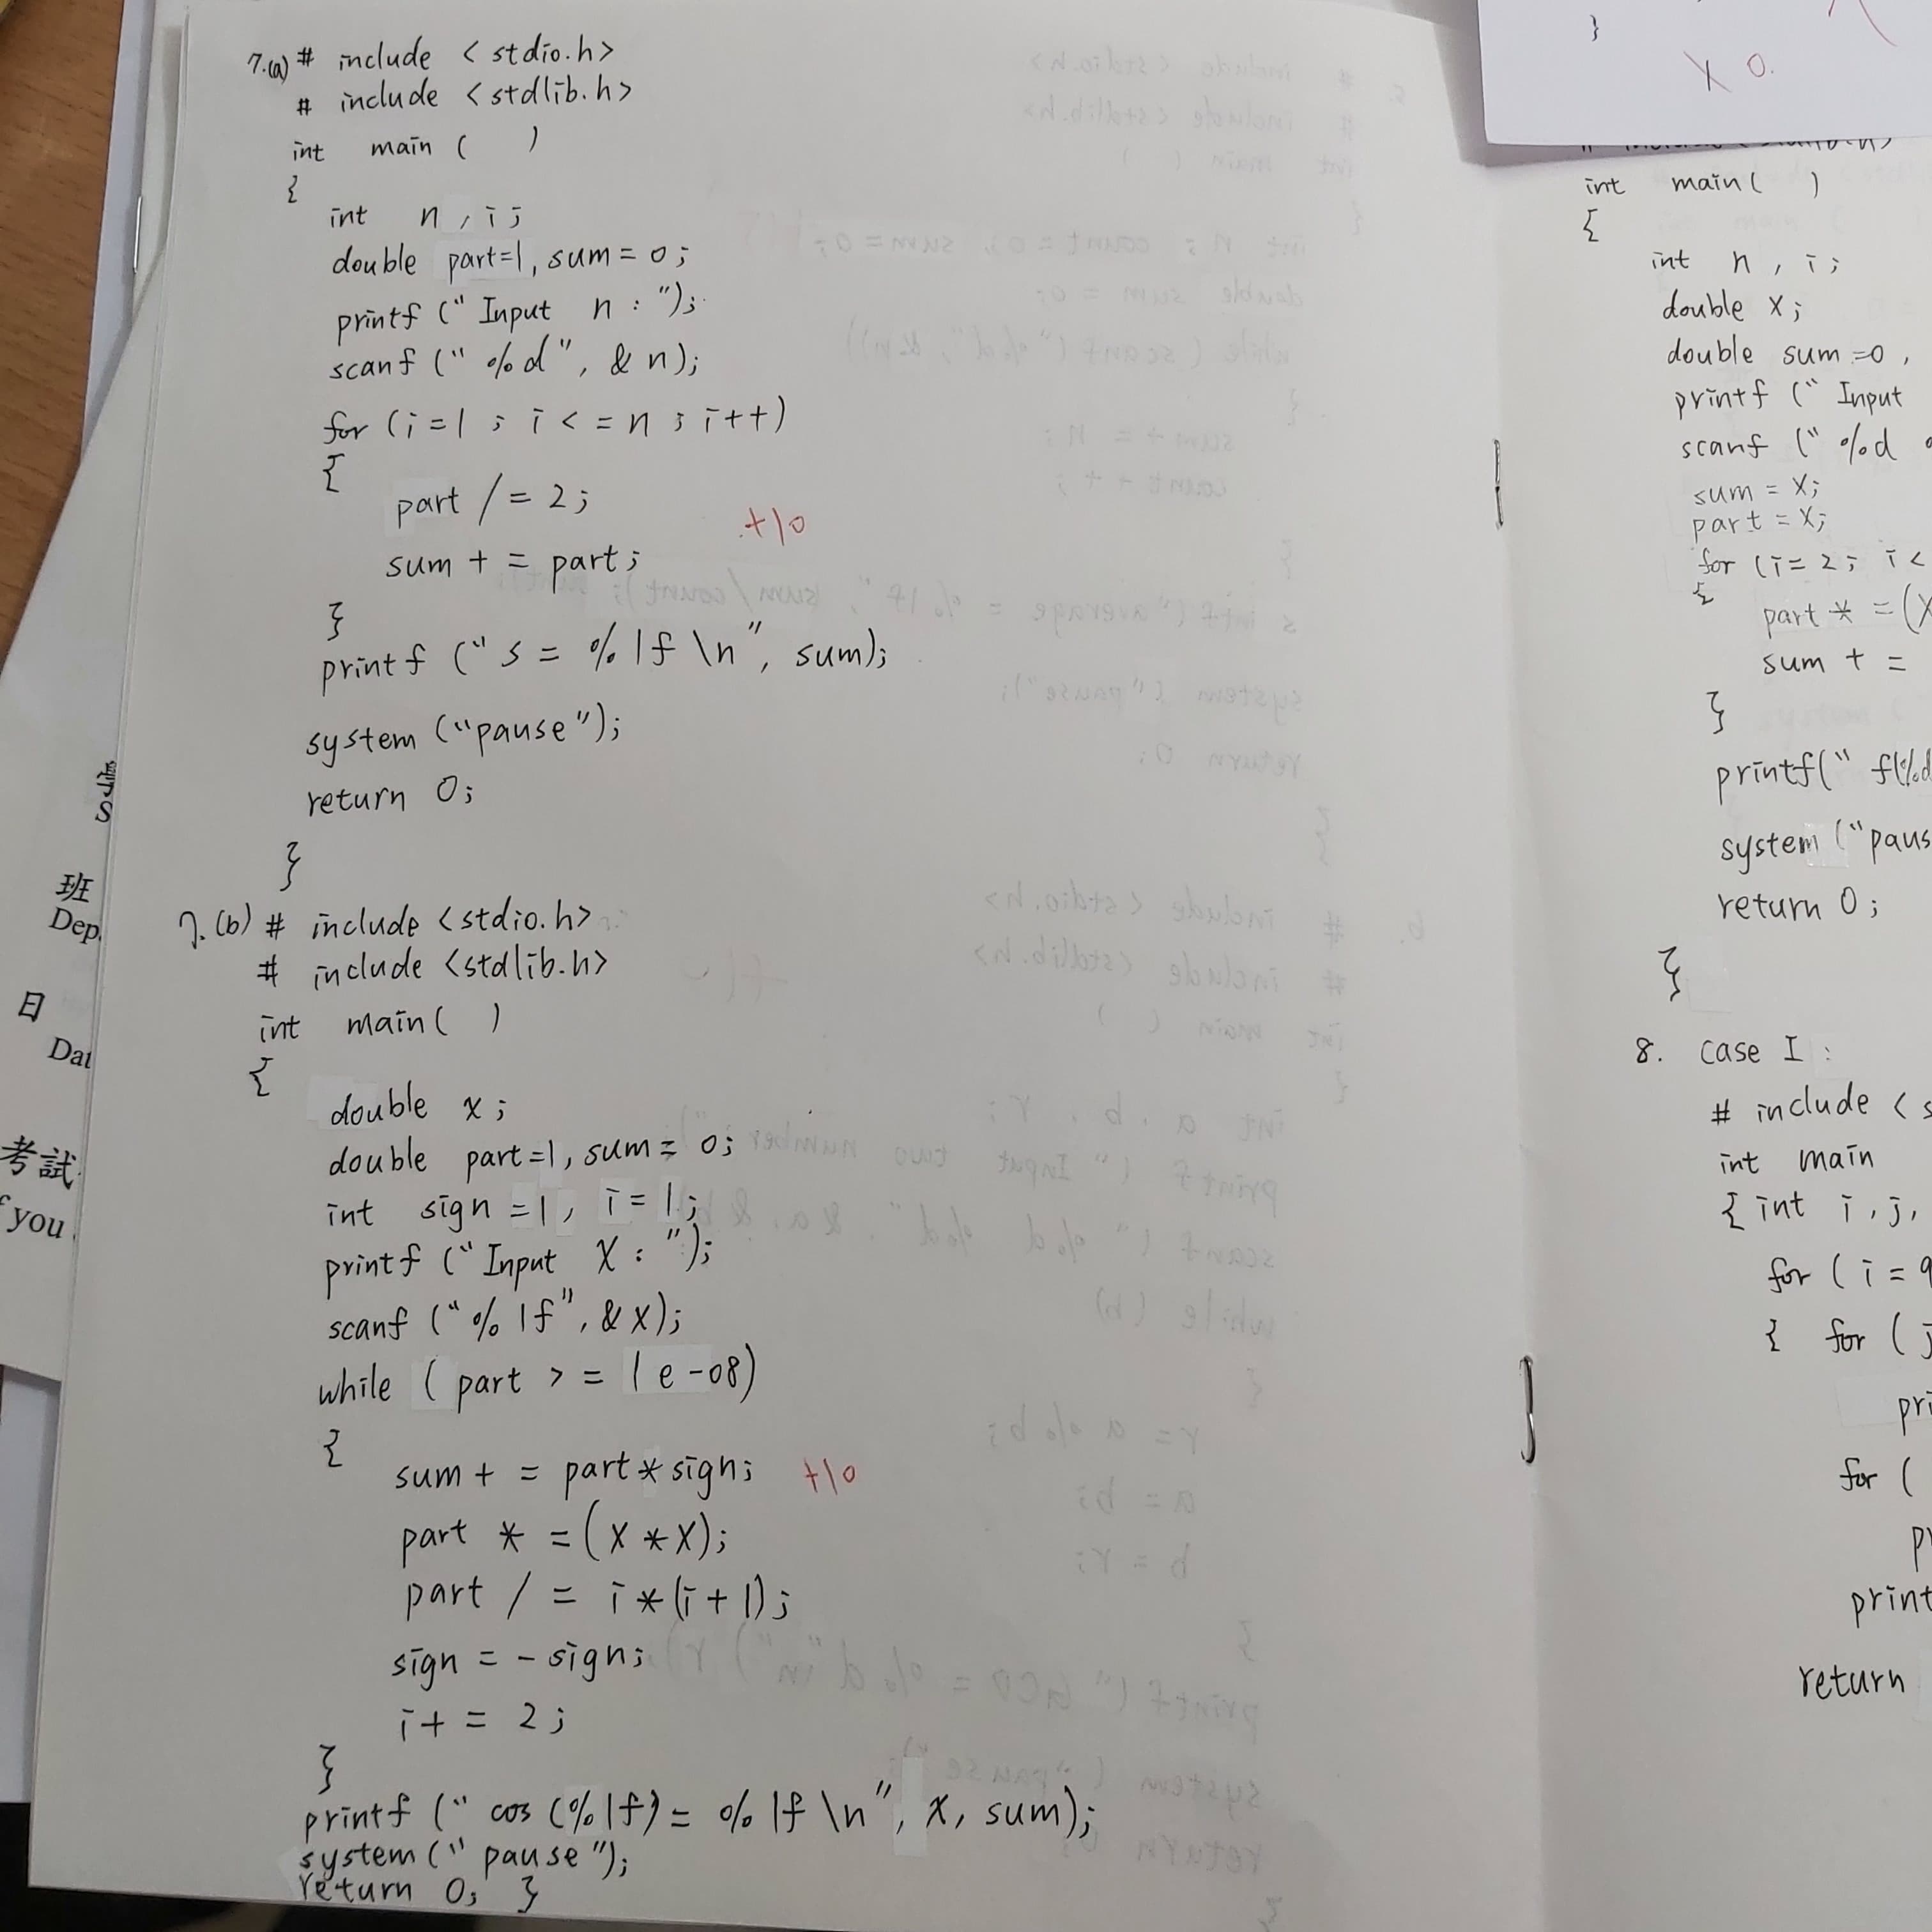 7.(a) # include < stdio.h>
# include <stdlib.h>
int main ( )
{
int n , i ;
double part=1, sum = 0 ;
printf (" Input n : ");
scanf (" %d", & n);
for (i = 1 ; i < = n ; i++)
{
part / = 2 ;
sum + = part ;
+10
}
printf (" s = % lf \n", sum);
system ("pause");
return 0;
}
7. (b) # include <stdio.h>
# include <stdlib.h>
int main ( )
{
double x ;
double part=1, sum = 0;
int sign =1, i = 1;
printf ("Input X : ");
scanf ("% lf", & x);
while ( part > = 1 e -08)
{
sum + = part * sign; +10
part * = (X * X);
part / = i * (i + 1) ;
sign = - sign;
i + = 2 ;
}
printf (" cos (% lf) = % lf \n", x, sum);
system (" pause ");
return 0; }
}
X 0.
int main ( )
{
int n , i ;
double x ;
double sum =0 ,
printf (" Input
scanf (" %d
sum = x;
part = x;
for (i = 2; i <
{
part * = (X
sum + =
}
printf(" f(%d
system ("paus
return 0 ;
}
8. case I :
# include < s
int main
{ int i , j ,
for ( i = 9
{ for ( j
pri
for (
pr
print
return
學
S
班
Dep.
日
Dat
考試
f you